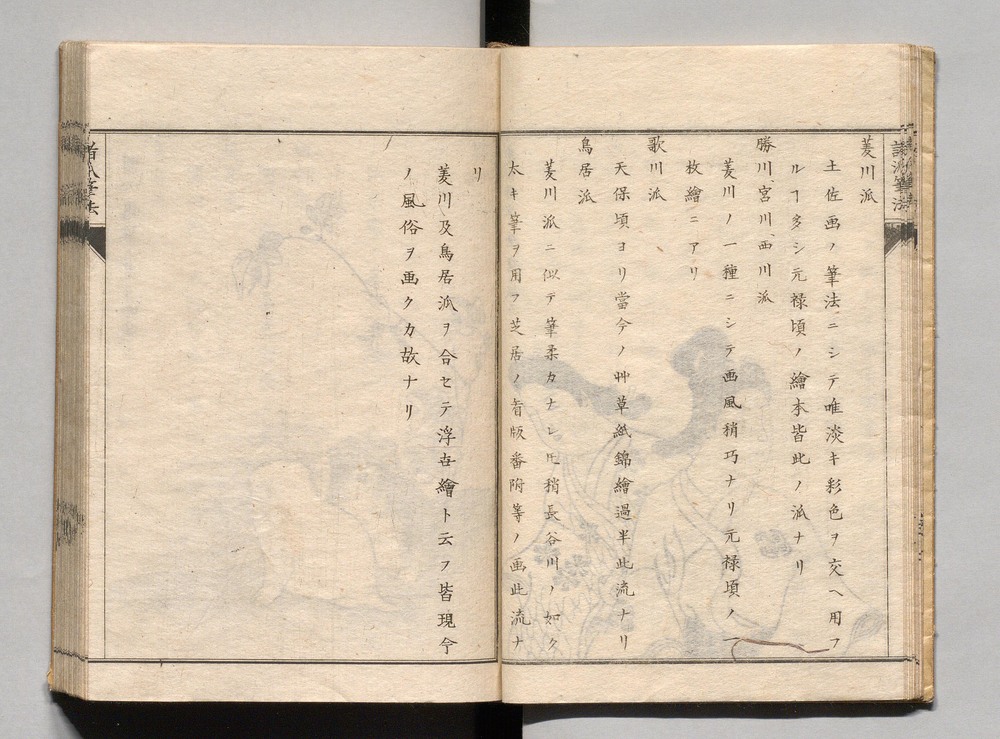 菱川派
土佐画ノ筆法ニシテ唯淡キ彩色ヲ交ヘ用フ
ルヿ多シ元禄頃ノ繪本皆此ノ派ナリ
勝川、宮川、西川派
菱川ノ一種ニシテ画風稍巧ナリ元禄頃ノ一
枚繪ニアリ
歌川派
天保頃ヨリ當今ノ艸草紙錦繪過半此流ナリ
鳥居派
菱川派ニ似テ筆柔カナレ𪜈稍長谷川ノ如ク
太キ筆ヲ用フ芝居ノ看版番附等ノ画此流ナ
リ
菱川及鳥居派ヲ合セテ浮世繪ト云フ皆現今
ノ風俗ヲ画クカ故ナリ